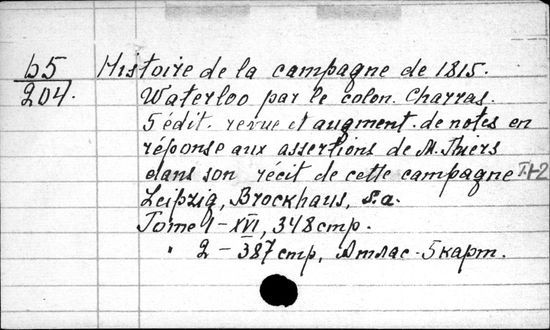 b5
204.
Histoire de la campagne de 1815.
Waterloo par le colon. Charras.
5 édit. revue et augment. de notes en
réponse aux assertions de M. Thiers
dans son récit de cette campagne T. 1-2
Leipzig, Brockhaus, s.a.
Tome 1 - XVI, 348 стр.
" 2 - 387 стр., Атлас - 5 карт.